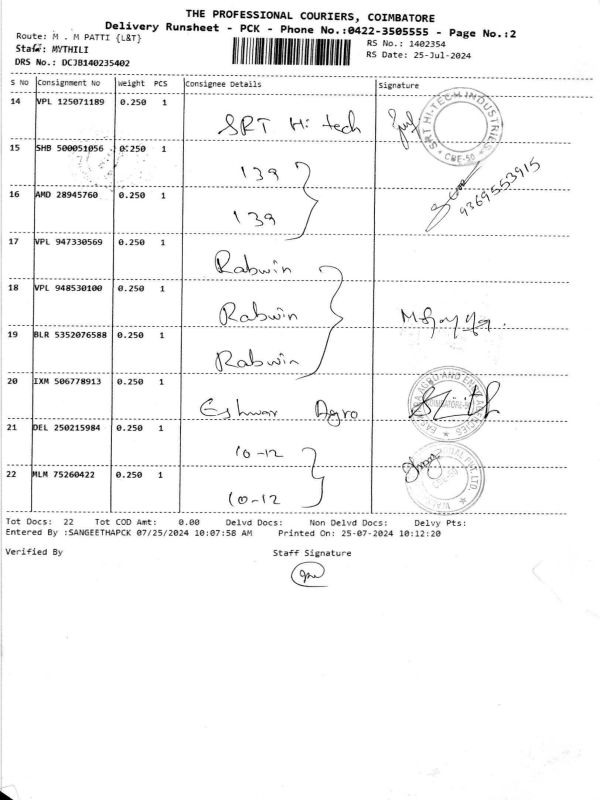 THE PROFESSIONAL COURIERS, COIMBATORE
Delivery Runsheet - PCK - Phone No.:0422-3505555 - Page No.:2
Route: M . M PATTI {L&T}
RS No.: 1402354
Staff: MYTHILI
RS Date: 25-Jul-2024
DRS No.: DCJB140235402
S No Consignment No Weight PCS Consignee Details Signature
14 VPL 125071189 0.250 1 SRT Hi tech
SRT HI-TECH INDUSTRIES
* CBE-50 *
15 SHB 500051056 0.250 1 139
9369553915
16 AMD 28945760 0.250 1 139
17 VPL 947330569 0.250 1 Rabwin
18 VPL 948530100 0.250 1 Rabwin
19 BLR 5352076588 0.250 1 Rabwin
20 IXM 506778913 0.250 1 Eshwar Agro
21 DEL 250215984 0.250 1 10-12
22 MLM 75260422 0.250 1 10-12
Tot Docs: 22 Tot COD Amt: 0.00 Delvd Docs: Non Delvd Docs: Delvy Pts:
Entered By :SANGEETHAPCK 07/25/2024 10:07:58 AM Printed On: 25-07-2024 10:12:20
Verified By Staff Signature